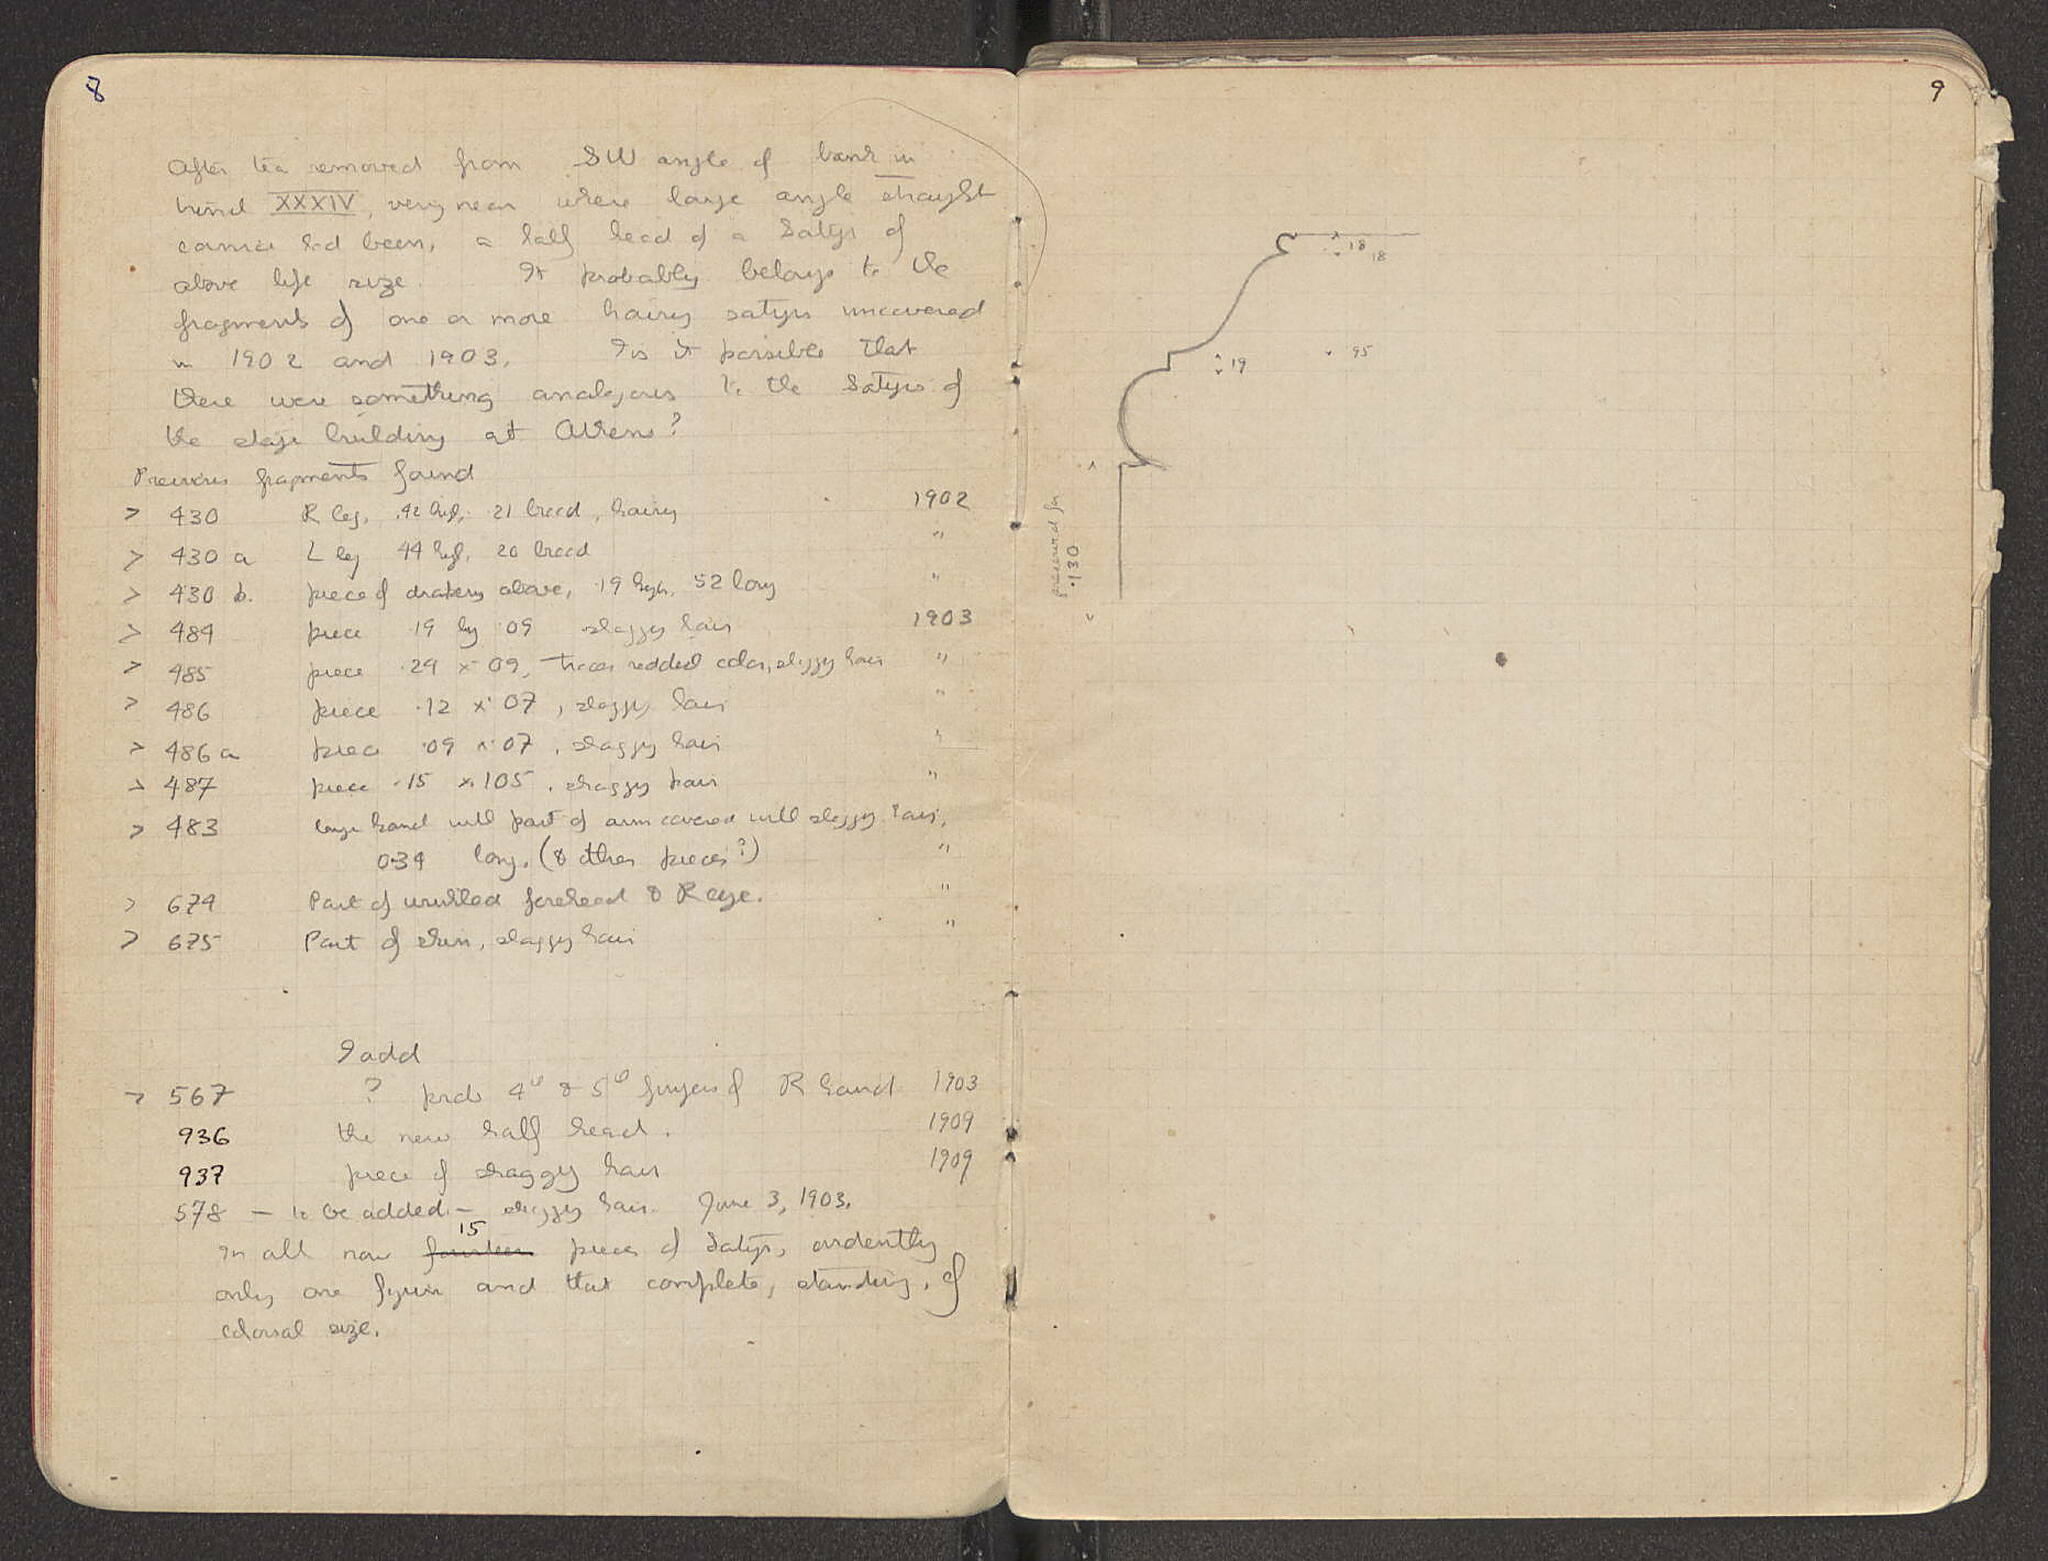 8
After tea removed from SW angle of bank in
trench XXXIV, very near where large angle straight
cornice had been, a half head of a Satyr of
above life size. It probably belongs to the
fragments of one or more hairy satyrs uncovered
in 1902 and 1903. Is it possible that
there were something analogous to the Satyrs of
the stage building at Athens?
Previous fragments found
> 430 R leg, .42 high, .21 broad, hairy 1902
> 430 a L leg 44 high, 20 broad "
> 430 b. piece of drapery above, .19 high, 52 long "
> 484 piece .19 by .09 shaggy hair 1903
> 485 piece .29 x .09, traces reddish color, shaggy hair "
> 486 piece .12 x .07, shaggy hair "
> 486 a piece .09 x .07, shaggy hair "
> 487 piece .15 x .105, shaggy hair "
> 483 large hand with part of arm covered with shaggy hair,
0.34 long. (& other pieces?) "
> 674 Part of wrinkled forehead & R eye. "
> 675 Part of shin, shaggy hair "
I add
> 567 ? 4th & 5th fingers of R hand 1903
936 the new half head. 1909
937 piece of shaggy hair 1909
578 — to be added — shaggy hair. June 3, 1903.
15
In all now fourteen pieces of Satyr, evidently
only one figure and that complete, standing, of
colossal size.
9
18
18
19
95
preserved for
.130